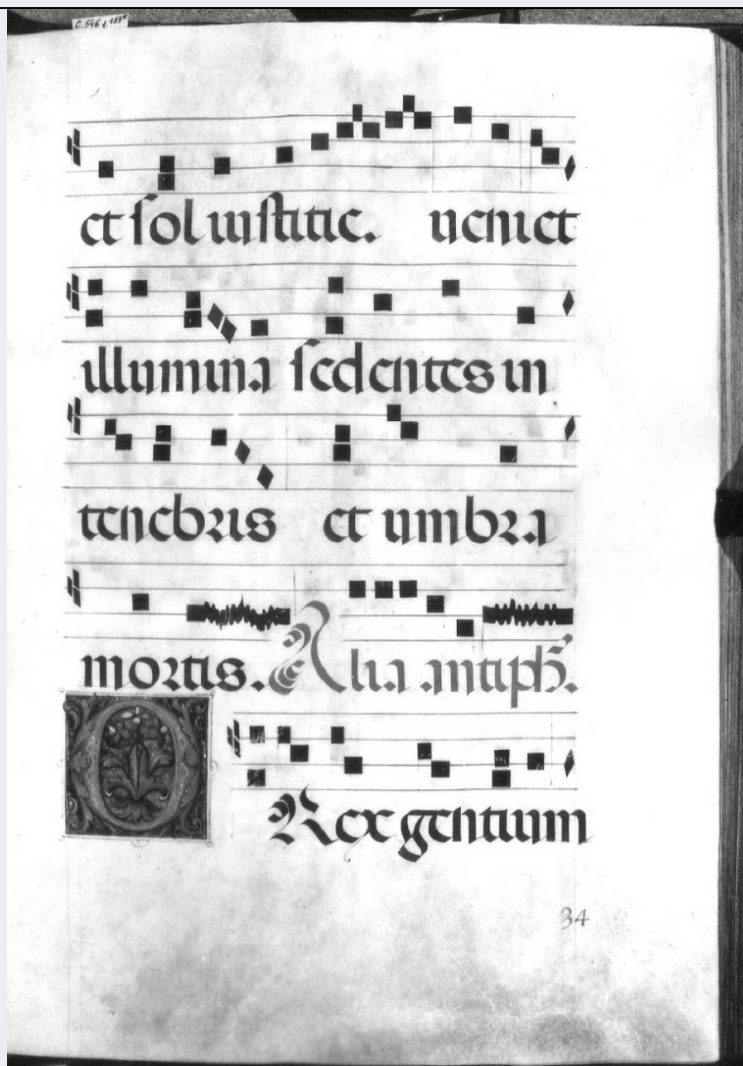 C. 546 f. 188r
et sol iustitie. ueniet
illumina sedentes in
tenebris et umbra
mortis. Alia antiph.
O Rex gentium
34